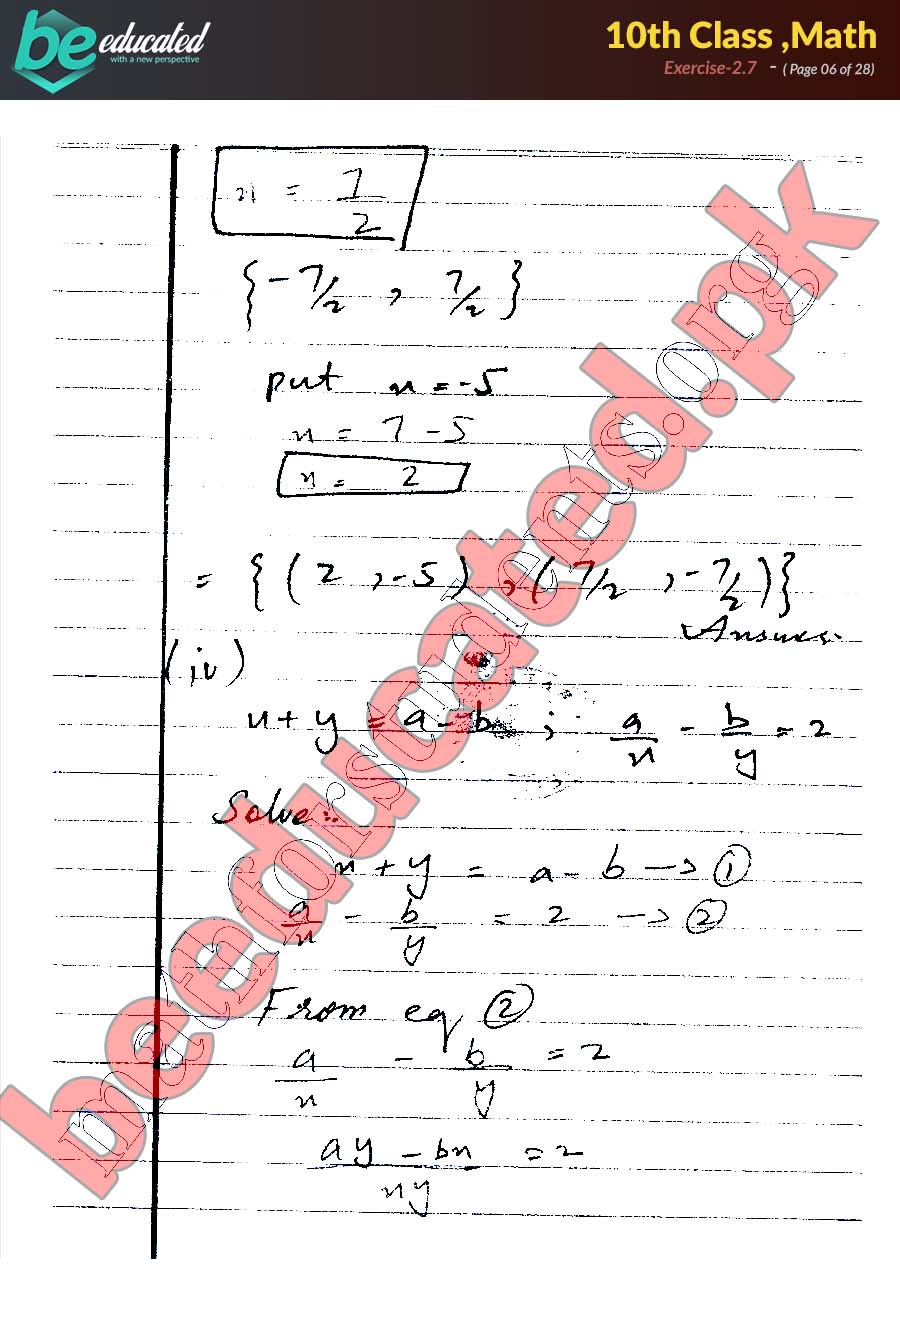 be educated
with a new perspective
10th Class ,Math
Exercise-2.7 - ( Page 06 of 28)
x = 7/2
{-7/2 , 7/2}
put x = -5
x = 7 - 5
x = 2
= {(2 , -5) , (7/2 , -7/2)}
Answer.
(iv)
x + y = a - b ; a/x - b/y = 2
Solve:
x + y = a - b → ①
a/x - b/y = 2 → ②
From eq ②
a/x - b/y = 2
ay - bx / xy = 2
beeducated.pk